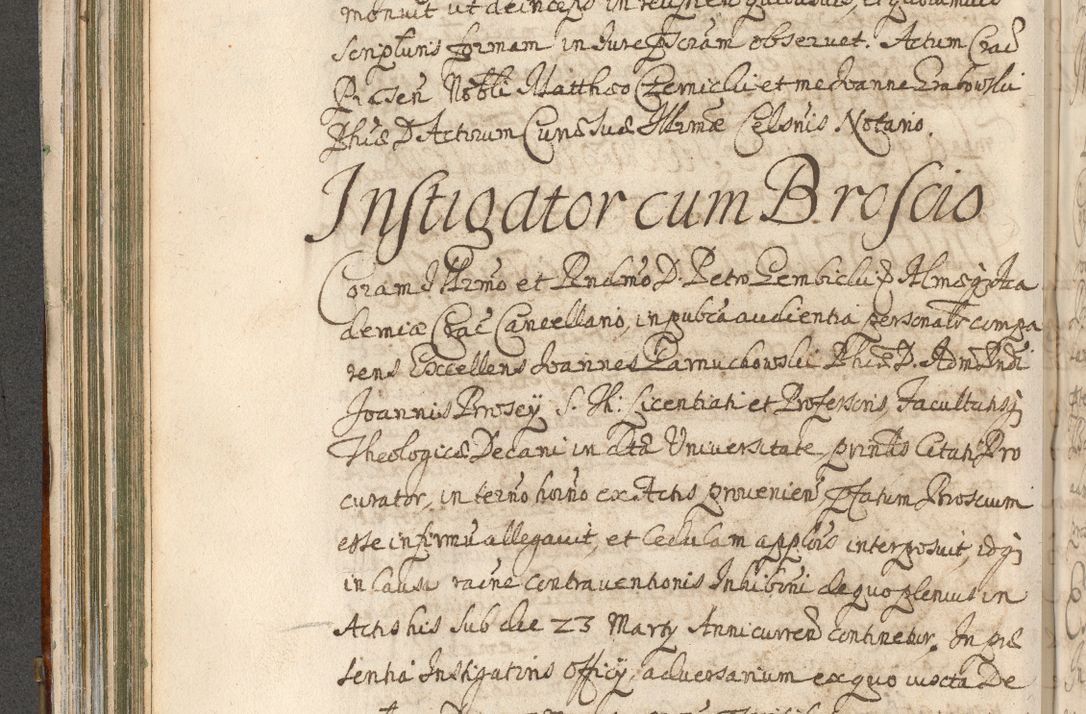 monuit ut deinceps in
scripturis formam in Jure pscram observet. Actum Crac
Præsen Nobli Matthæo Czernicki et me Joanne Grabowski
Phiæ D Actorum Curiæ suæ Illrmæ Celsnis Notario.
Instigator cum Broscio
Coram Illrmo et Rndmo D. Petro Gembicki Almæ Aca
demiæ Crac Cancellario, in pubca audientia personalr compa
rens Excellens Joannes Tarnuchowski Phiæ D. Admd Rndi
Joannis Broscy S. Th: Licentiati et Professoris, Facultatisq
Theologicæ Decani in alta Universitate printis Citati Pro
curator, in terno horno ex Actis provenien pfatum Broscium
esse infirmu allegavit, et Cedulam applois interposuit, idq
in causa raone contraventionis Inhiboni de quo plenius in
Actis his sub die 23 Marty Anni curren continetur. In præ
sentia Instigatoris Officy, adversarium ex quo iuxta De